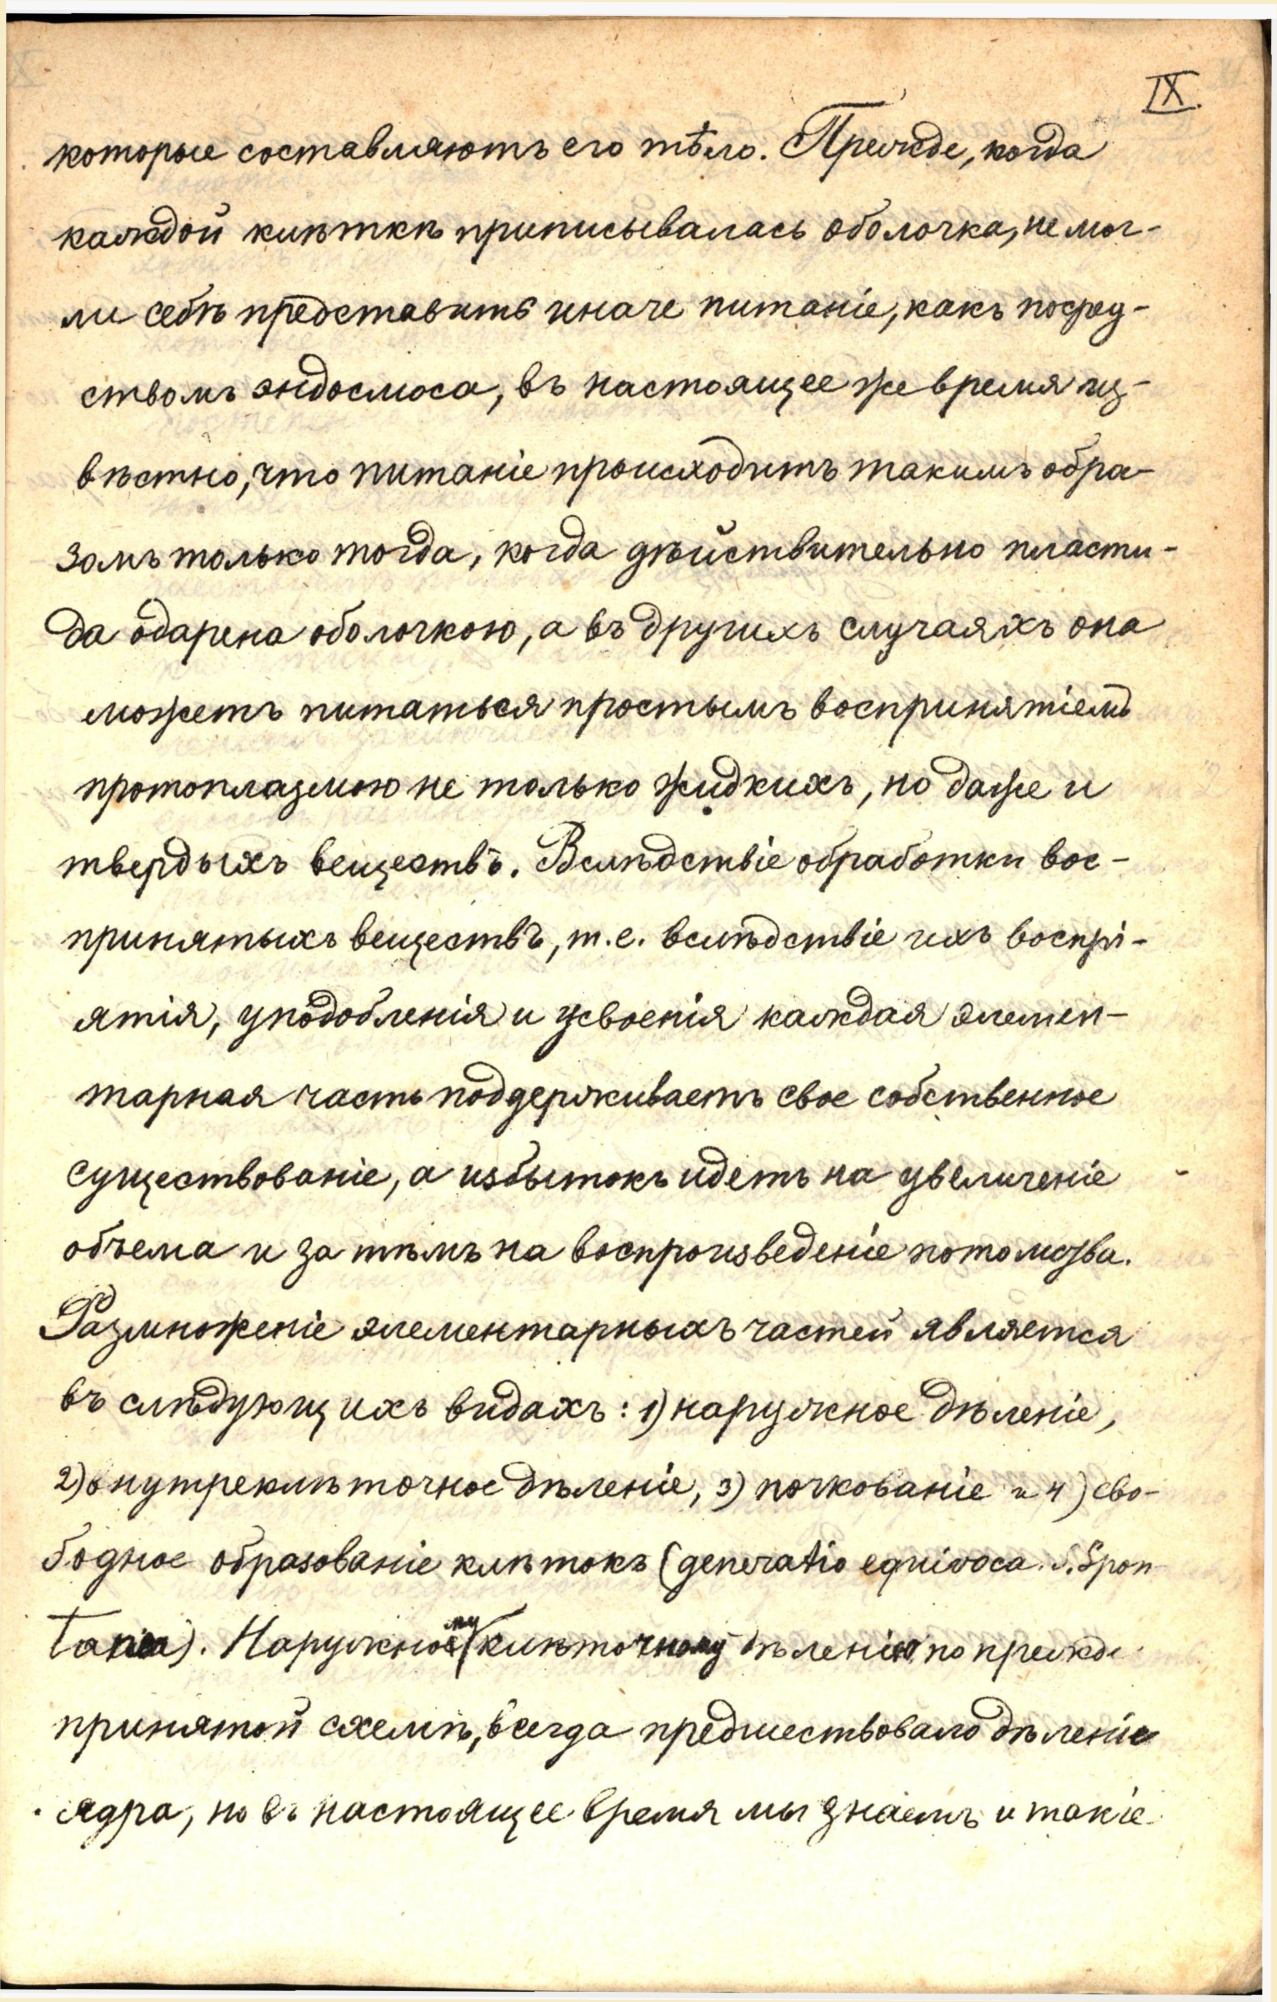 IX.
которые составляютъ его тѣло. Прежде, когда
каждой клѣткѣ приписывалась оболочка, не мог-
ли себѣ представить иначе питаніе, какъ посред-
ствомъ эндосмоса, въ настоящее же время из-
вѣстно, что питаніе происходитъ такимъ обра-
зомъ только тогда, когда дѣйствительно пласти-
да одарена оболочкою, а въ другихъ случаяхъ она
можетъ питаться простымъ воспринятіемъ
протоплазмою не только жидкихъ, но даже и
твердыхъ веществъ. Вслѣдствіе обработки вос-
принятыхъ веществъ, т.е. вслѣдствіе ихъ воспрі-
ятія, уподобленія и усвоенія каждая элемен-
тарная часть поддерживаетъ свое собственное
существованіе, а избытокъ идетъ на увеличеніе
объема и за тѣмъ на воспроизведеніе потомства.
Размноженіе элементарныхъ частей является
въ слѣдующихъ видахъ: 1) наружное дѣленіе,
2) внутреклѣточное дѣленіе, 3) почкованіе и 4) сво-
бодное образованіе клѣтокъ (generatio equivoca s. Spon
tanea). Наружному клѣточному дѣленію, по прежде
принятой схемѣ, всегда предшествовало дѣленіе
ядра, но въ настоящее время мы знаемъ и такіе